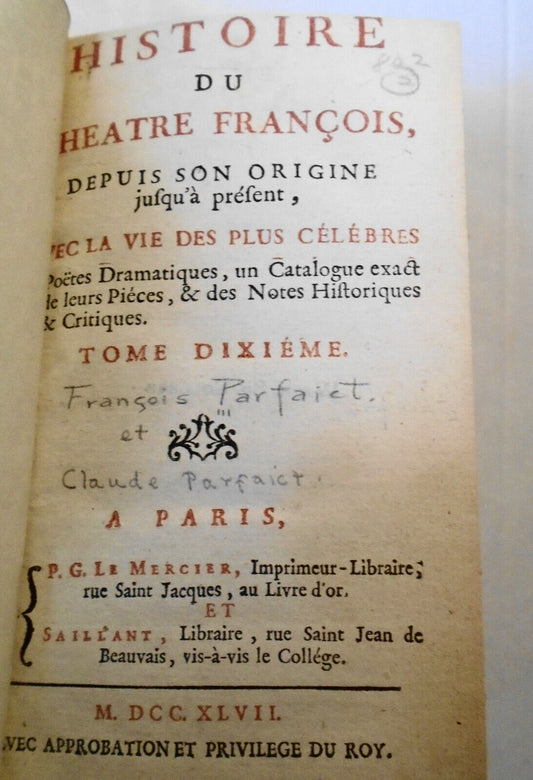 HISTOIRE
802
2
DU
HEATRE FRANÇOIS,
DEPUIS SON ORIGINE
juſqu'à préſent,
VEC LA VIE DES PLUS CÉLÉBRES
Poëtes Dramatiques, un Catalogue exact
de leurs Piéces, & des Notes Hiſtoriques
& Critiques.
TOME DIXIÉME.
François Parfaict.
et
Claude Parfaict.
A PARIS,
P. G. LE MERCIER, Imprimeur-Libraire;
rue Saint Jacques, au Livre d'or.
ET
SAILLANT, Libraire, rue Saint Jean de
Beauvais, vis-à-vis le Collége.
M. DCC. XLVII.
AVEC APPROBATION ET PRIVILEGE DU ROY.